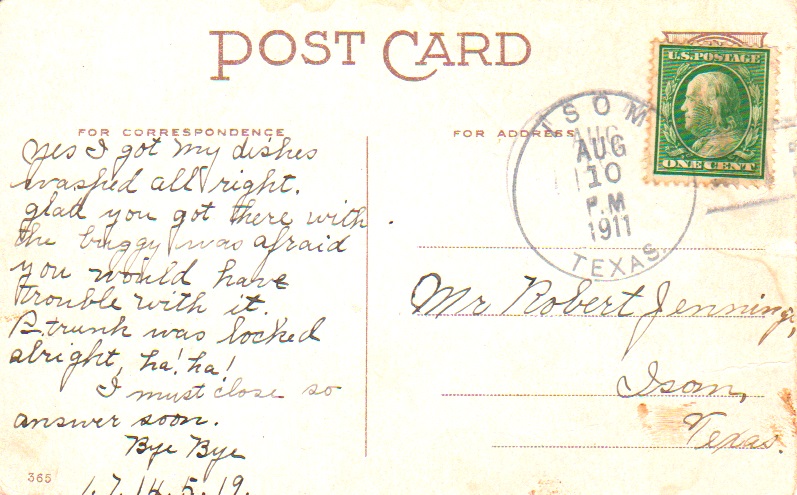 POST CARD
FOR CORRESPONDENCE
FOR ADDRESS
U.S. POSTAGE
ONE CENT
ISOM
AUG
AUG
10
P.M
1911
TEXAS.
yes I got my dishes
washed all right.
glad you got there with
the buggy was afraid
you would have
trouble with it.
trunk was locked
alright, ha! ha!
I must close so
answer soon.
Bye Bye
1. 7. 14. 5. 19.
365
Mr Robert Jennings,
Isom,
Texas.